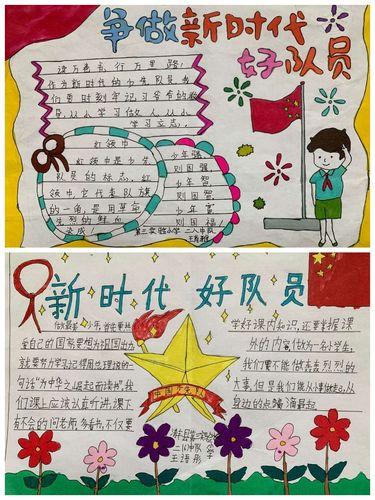 争做新时代
好队员
读万卷书,行万里路!
作为新时代的少先队员我
们要时刻牢记习爷爷的教
导从小学习做人从小
学习立志,
红领巾
红领巾是少先
队员的标志,红
领巾它代表队旗
的一角,是用革命
先烈的鲜血
染成!
少年强
则国强
少年智
则国智
少年富
则国富
第三实验小学
二八中队
新时代 好队员
自己的国家要想为祖国出力
就要努力学习记得周总理的一
句话“为中华之崛起而读书”我
们课上应该认真听讲,课下
有不会的问老师,多看书,不仅要
中国少先队
学好课内知识,还要掌握课
外的内容,做为一名小学生,
我们要不能做轰轰烈烈的
大事,但是我们能从小事做起,从
身边的点滴做起
二八中队
王语彤